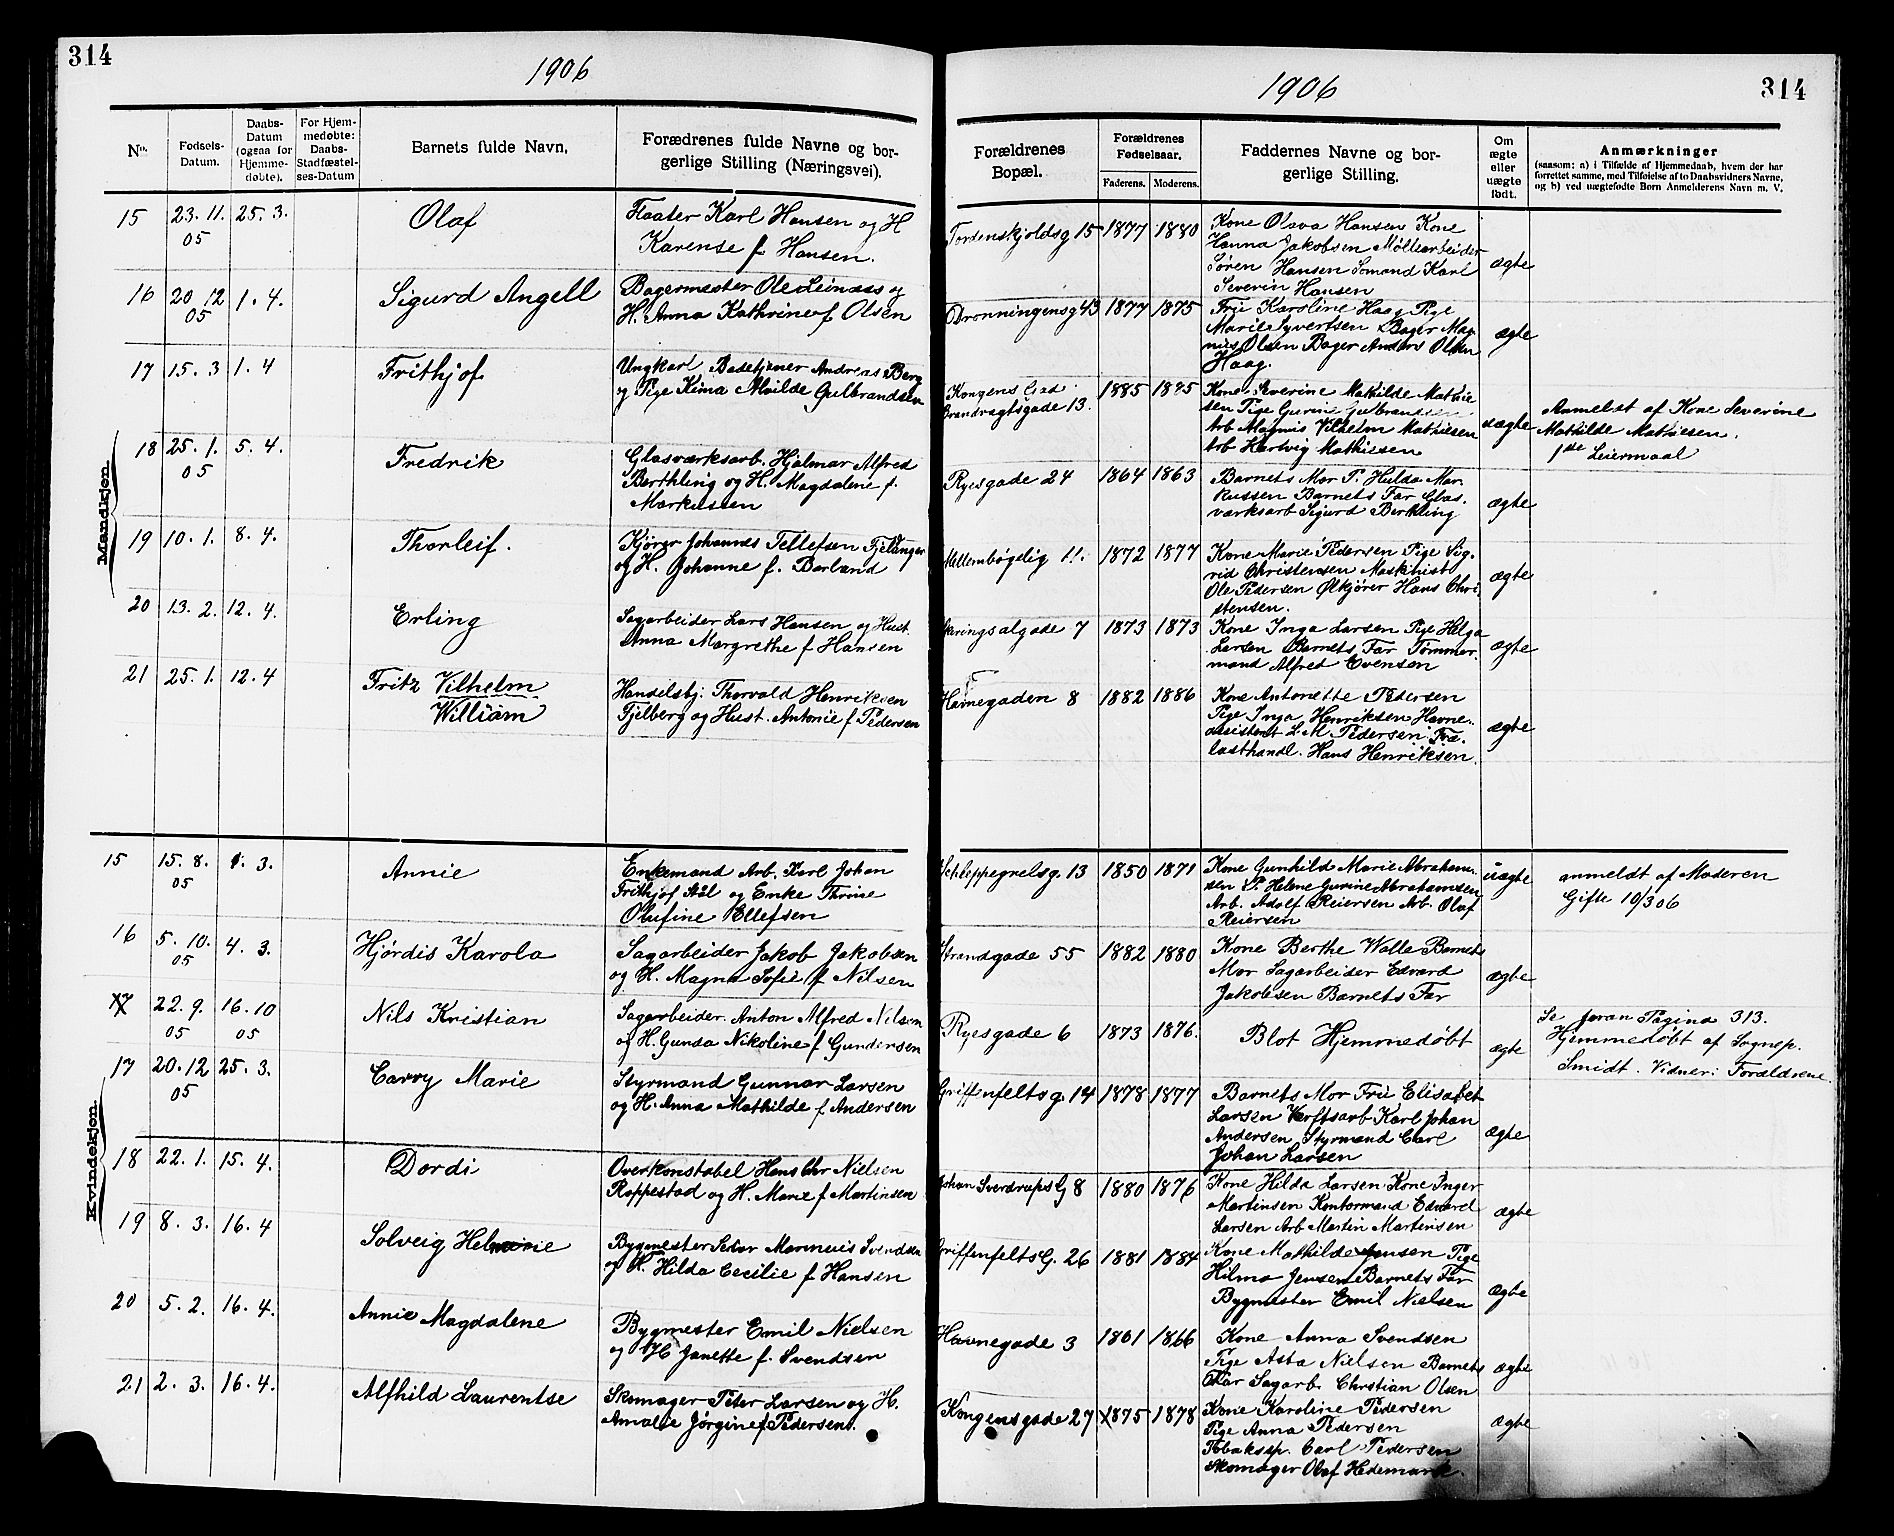 314
1906
1906
314
No.
Fødsels-
Datum.
Daabs-
Datum
(ogsaa for
Hjemme-
døbte).
For Hjem-
medøbte:
Daabs-
Stadfæstel-
ses-Datum
Barnets fulde Navn.
Forædrenes fulde Navne og bor-
gerlige Stilling (Næringsvei).
Forældrenes
Bopæl.
Forældrenes
Fødselsaar.
Faderens.
Moderens.
Faddernes Navne og bor-
gerlige Stilling.
Om
ægte
eller
uægte
født.
Anmærkninger
(saasom: a) i Tilfælde af Hjemmedaab, hvem der har
forrettet samme, med Tilføielse af to Daabsvidners Navne,
og b) ved uægtefødte Børn Anmelderens Navn m. V.
Mandkjøn.
15 23. 11. 25. 3. Olaf Flaater Karl Hansen og H
05 Karense f. Hansen.
Tordenskjoldsg 15 1877 1880 Kone Olava Hansen Kone
Hanna Jakobsen Møllearbeider
Søren Hansen Sømand Karl ægte
Severin Hansen
16 20 12 1. 4. Sigurd Angell Bagermester Ole Leinaas og
05 H. Anna Kathrine f Olsen
Dronningensg 43 1877 1875 Fru Karoline Haag Pige
Marie Syvertsen Bager Mag
nus Olsen Bager Anders Olsen ægte
Haag.
17 15. 3 1. 4 Frithjof Ungkarl Badetjener Andreas Berg
og Pige Kima Moilde Gulbrandsen
Kongens
Brandvagtsgade 13. 1885 1885 Kone Severine Mathilde Mathie
sen Pige Gurine Gulbrandsen
Arb Magnus Vilhelm Mathiesen uægte
Arb Hartvig Mathiesen
Anmeldt af Kone Severine
Mathilde Mathiesen.
1ste Leiermaal
18 25. 1. 5. 4. Fredrik Glasværksarb. Hjalmar Alfred
05 Berthling og H. Magdalene f.
Markussen
Ryesgade 24 1864 1863 Barnets Mor P. Hulda Mar
kussen Barnets Far Glas
værksarb Sigurd Berthling ægte
19 10. 1. 8. 4. Thorleif. Kjører Johannes Tellefsen Fjeldanger
og H. Johanne f. Borland
Mellembøgelig 11. 1872 1877 Kone Marie Pedersen Pige Sig-
rid Christensen Maskinist
Ole Pedersen Ølkjører Hans Chri ægte
stensen.
20 13. 2. 12. 4. Erling Sagarbeider Lars Hansen og Hust.
Anna Margrethe f Hansen
Skringsalgade 7 1873 1873 Kone Inga Larsen Pige Helga
Larsen Barnets Far Tømmer-
mand Alfred Evensen ægte
21 25. 1. 12. 4 Fritz Vilhelm Handelsbj. Thorvald Henriksen
William Fjelberg og Hust. Antonie f Pedersen
Havnegaden 8 1882 1886 Kone Antonette Pedersen
Pige Inga Henriksen Havne-
assistent L. M. Pedersen Træ- ægte
lasthandl. Hans Henriksen.
Kvindekjøn.
15 15. 8. 1. 3. Annie Enkemand Arb. Karl Johan
05 Frithjof Stål og Enke Thrine
Olufine Ellefsen
Schleppegrelsg. 13 1850 1871 Kone Gunhild Marie Abraham-
sen P. Helene Gurine Abrahamsen uægte
Arb. Adolf Reiersen Arb. Olaf
Reiersen
anmeldt af Moderen
Gifte 10/3 06
16 5. 10. 4. 3. Hjørdis Karola Sagarbeider Jakob Jakobsen
05 og H. Magna Sofie f Nilsen
Strandgade 55 1882 1880 Kone Berthe Walle Barnets
Mor Sagarbeider Edvard ægte
Jakobsen Barnets Far
17 22. 9. 16. 10 Nils Kristian Sagarbeider. Anton Alfred Nilsen
05 05 og H. Gunda Nikoline f Gundersen
Ryesgade 6 1873 1876. Blot Hjemmedøbt ægte
Se foran Pagina 313.
Hjemmedøbt af Sognep.
Smidt. Vidner: Forældrene.
17 20. 12 25. 3. Carry Marie Styrmand Gunnar Larsen
05 og H. Anna Mathilde f Andersen
Griffenfeltsg. 14 1878 1877 Barnets Mor Fru Elisabet
Larsen Værftsarb Karl Johan
Andersen Styrmand Carl ægte
Johan Larsen
18 22. 1. 15. 4. Dordi Overkonstabel Hans Chr Nielsen
Roppestad og H. Marie f Martinsen
Johan Sverdrups G 8 1880 1876 Kone Hilda Larsen Kone Inger
Martinsen Kontormand Edvard
Larsen Arb Martin Martinsen ægte
19 8. 3. 16. 4 Solveig Helmine Bygmester Marinius Svendsen
og H. Hilda Cecilie f Hansen
Griffenfelts G. 26 1881 1884 Kone Mathilde Jensen Pige
Hilma Jensen Barnets Far ægte
Bygmester Emil Nielsen
20 5. 2. 16. 4. Annie Magdalene Bygmester Emil Nielsen
og H Janette f. Svendsen
Havnegade 3 1861 1866 Kone Anna Svendsen
Pige Asta Nielsen Barnets ægte
Far Sagarb. Christian Olsen
21 2. 3. 16. 4. Alfhild Laurentse Skomager Peter Larsen og H.
Amalie Jørgine f Pedersen.
Kongensgade 27 1875 1878 Kone Karoline Pedersen
Pige Anna Pedersen ægte
Tobaksp. Carl Pedersen
Skomager Olaf Hedemark.